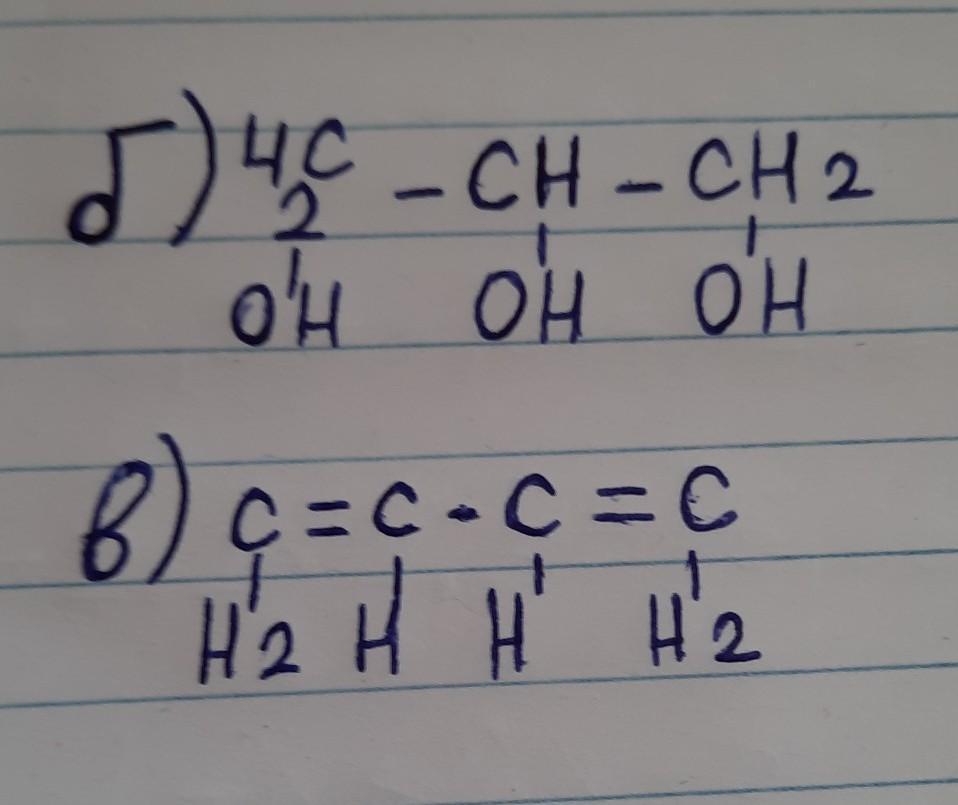 б) H₂C - CH - CH2
OH OH OH
в) C = C - C = C
H2 H H H2